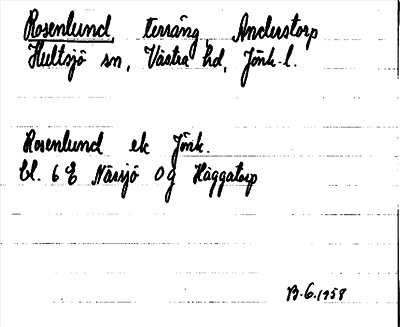 Rosenlund, terräng, Anderstorp
Hultsjö sn, Västra hd, Jönk. l.
Rosenlund ek Jönk.
bl. 6 E Nässjö og Häggatorp
B. G. 1958